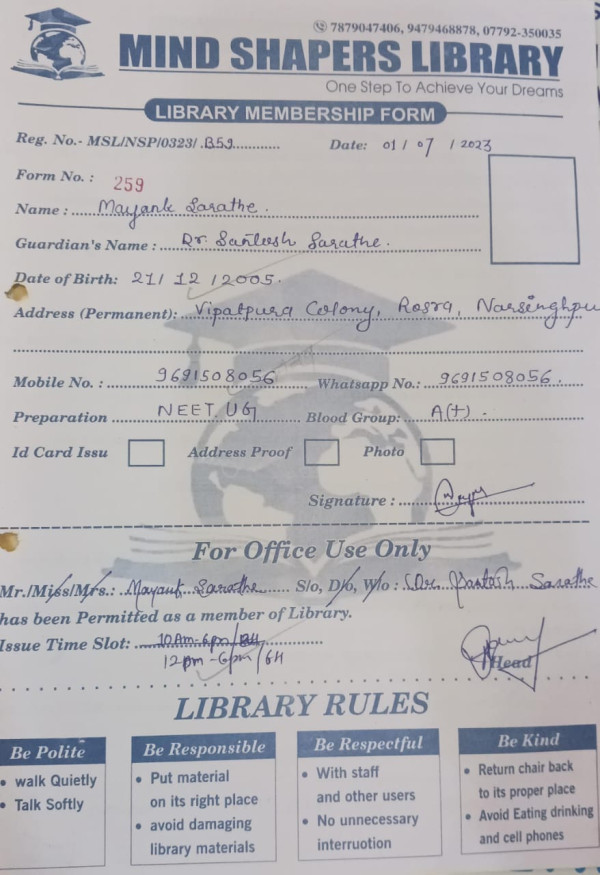 7879047406, 9479468878, 07792-350035
MIND SHAPERS LIBRARY
One Step To Achieve Your Dreams
LIBRARY MEMBERSHIP FORM
Reg. No.- MSL/NSP/0323/.B59............ Date: 01 / 07 / 2023
Form No. : 259
Name : Mayank Sarathe.
Guardian's Name : Dr. Santosh Sarathe.
Date of Birth: 21/ 12 /2005.
Address (Permanent): Vipatpura Colony, Rosra, Narsinghpu
Mobile No. : 9691508056 Whatsapp No.: 9691508056.
Preparation NEET UG Blood Group: A(+).
Id Card Issu Address Proof Photo
Signature :
For Office Use Only
Mr./Miss/Mrs.: Mayank Sarathe S/o, D/o, W/o : Dr. Santosh Sarathe
has been Permitted as a member of Library.
Issue Time Slot: 10Am-6pm/8H
12pm-6pm/6H
Head
LIBRARY RULES
Be Polite
• walk Quietly
• Talk Softly
Be Responsible
• Put material
on its right place
• avoid damaging
library materials
Be Respectful
• With staff
and other users
• No unnecessary
interruotion
Be Kind
• Return chair back
to its proper place
• Avoid Eating drinking
and cell phones